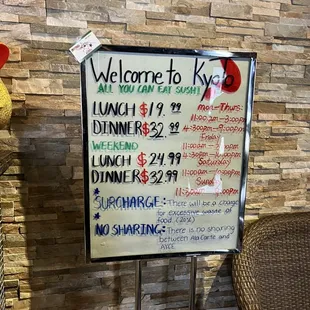 Welcome to Kyoto
ALL YOU CAN EAT SUSHI
LUNCH $19.99
DINNER $32.99
WEEKEND
LUNCH $24.99
DINNER $32.99
Mon-Thurs:
11:00am-3:00pm
4:30pm-9:00pm
Friday
11:00am-
Saturday
11:00am-10:00pm
Sun:
11:30am-9:00pm
SURCHARGE: There will be a charge
for excessive waste of
food.
NO SHARING: There is no sharing
between Ala Carte and
AYCE.